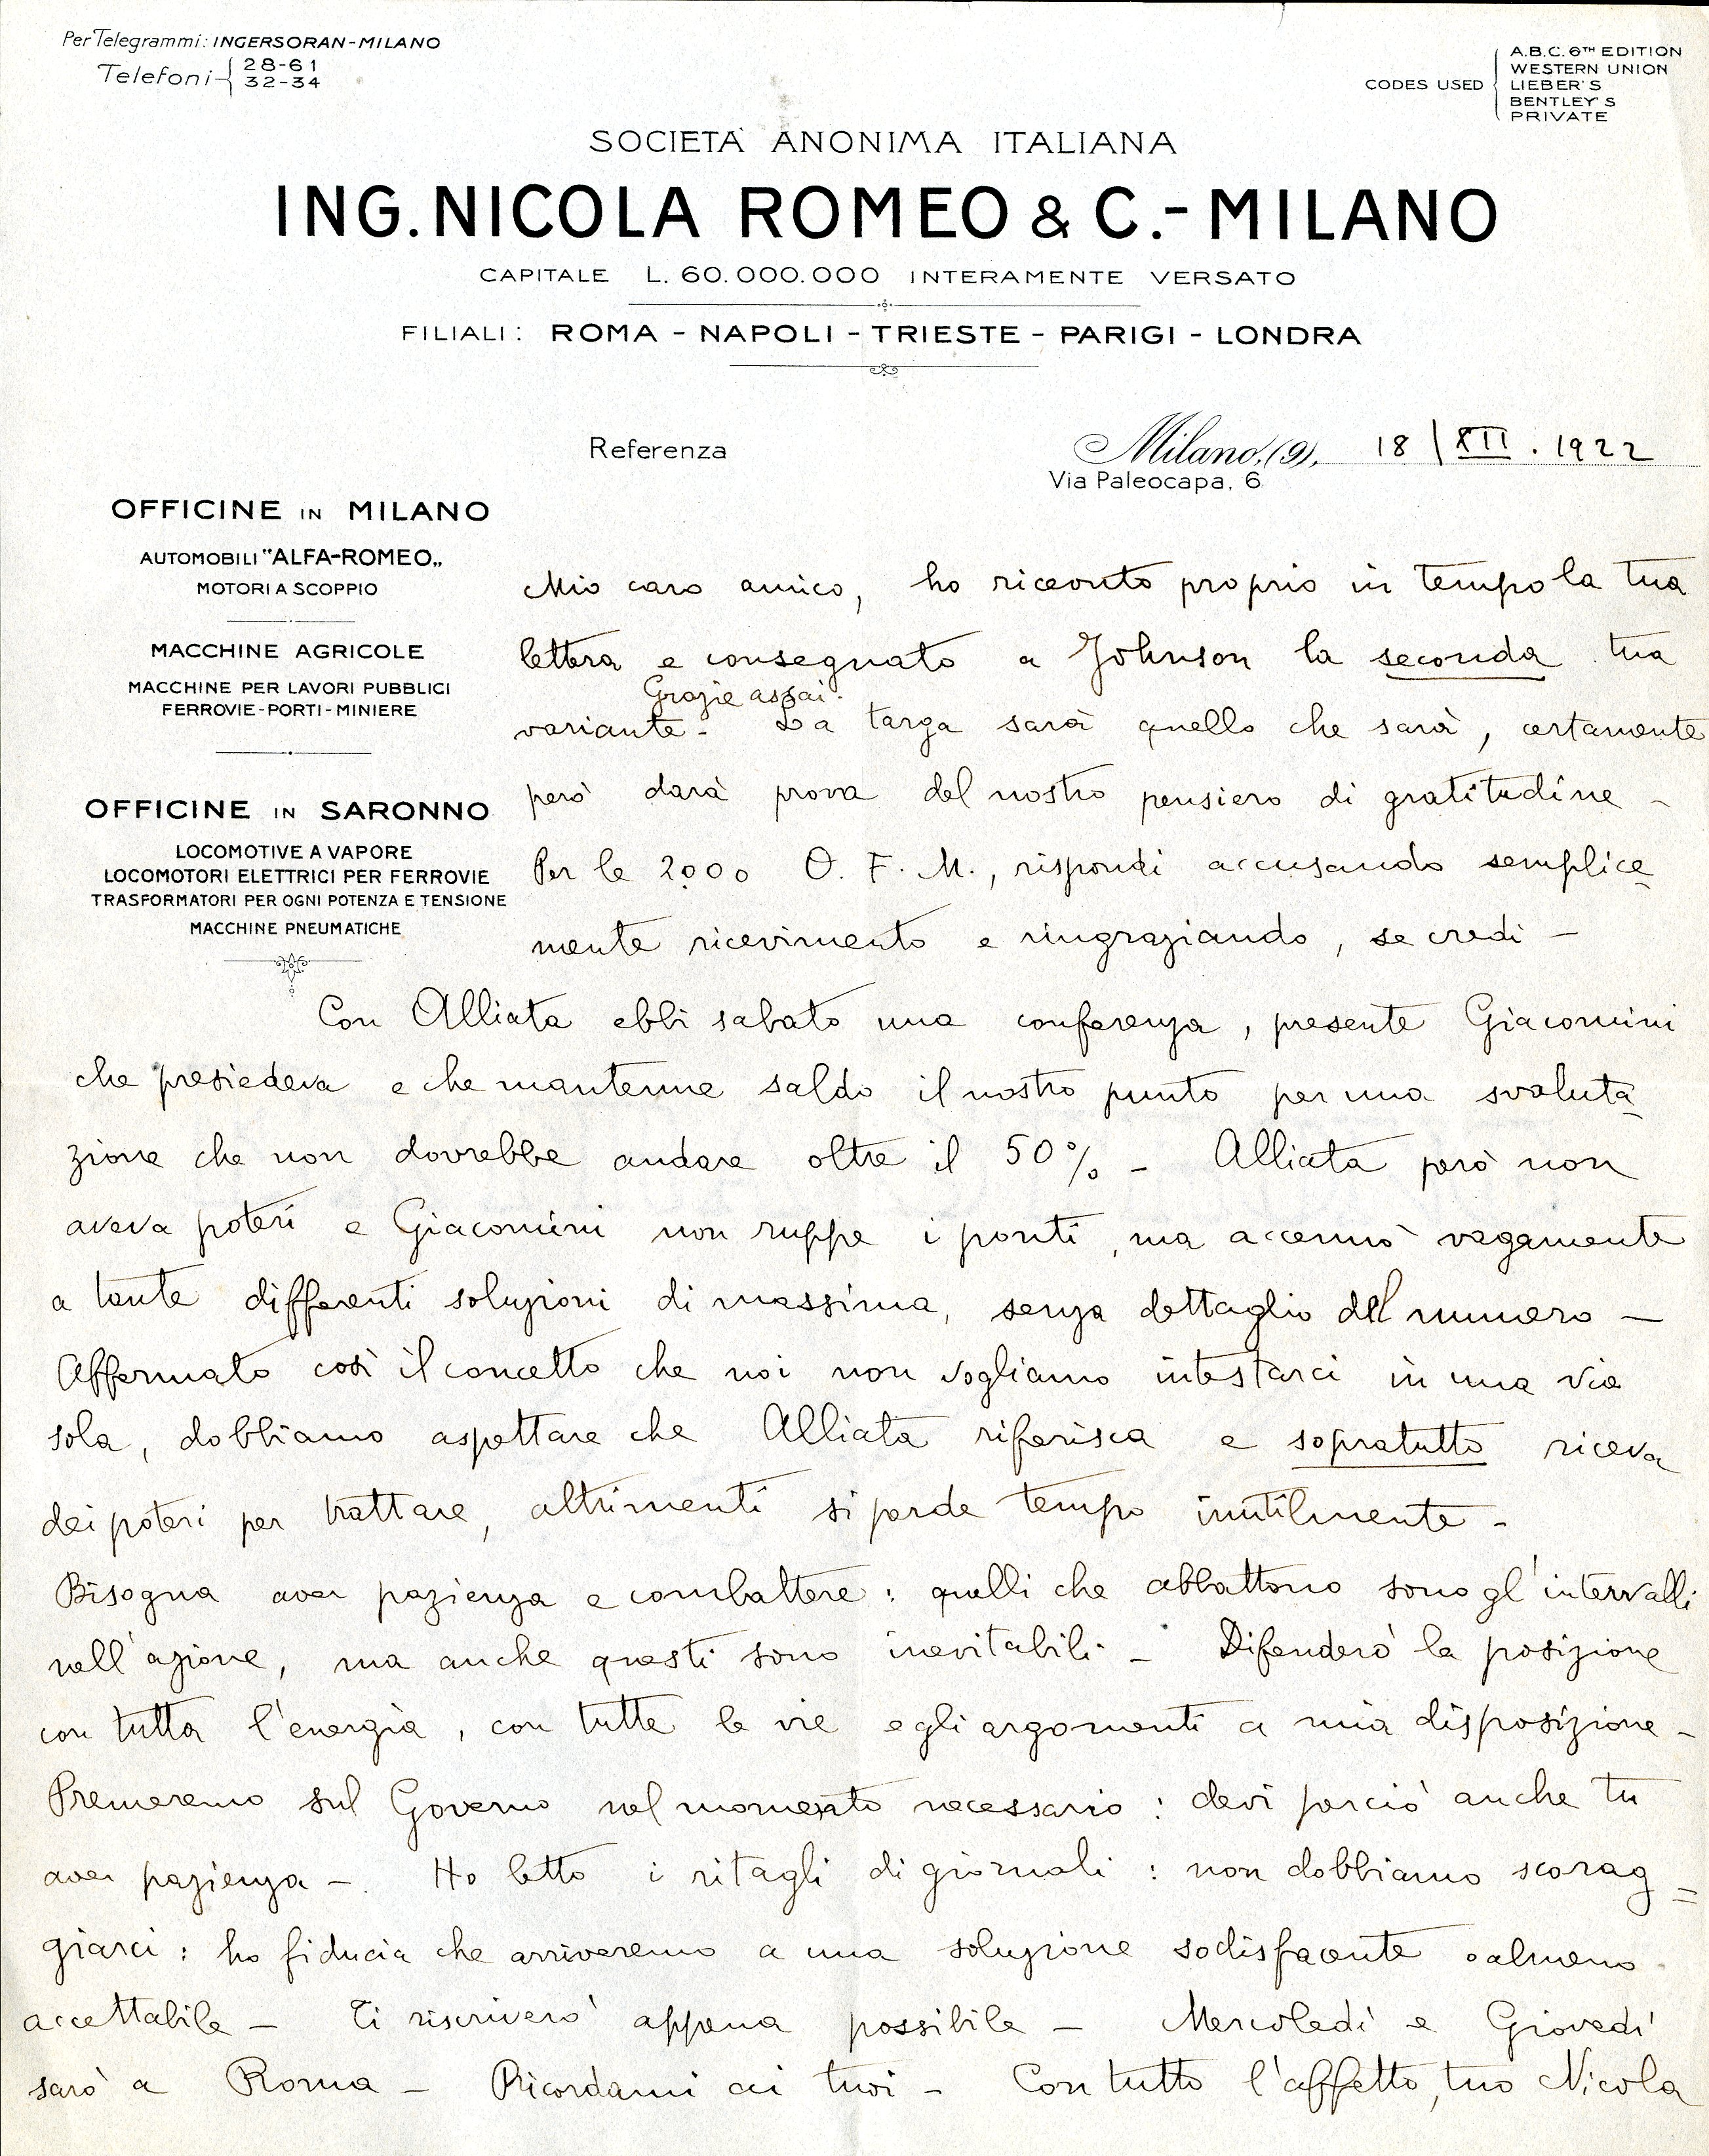 Per Telegrammi: INGERSORAN-MILANO
Telefoni 28-61
32-34
CODES USED
A.B.C. 6TH EDITION
WESTERN UNION
LIEBER'S
BENTLEY'S
PRIVATE
SOCIETÀ ANONIMA ITALIANA
ING. NICOLA ROMEO & C. - MILANO
CAPITALE L. 60.000.000 INTERAMENTE VERSATO
FILIALI: ROMA - NAPOLI - TRIESTE - PARIGI - LONDRA
Referenza
Milano, (9), 18 | XII . 1922
Via Paleocapa, 6
OFFICINE IN MILANO
AUTOMOBILI "ALFA-ROMEO„
MOTORI A SCOPPIO
MACCHINE AGRICOLE
MACCHINE PER LAVORI PUBBLICI
FERROVIE-PORTI-MINIERE
OFFICINE IN SARONNO
LOCOMOTIVE A VAPORE
LOCOMOTORI ELETTRICI PER FERROVIE
TRASFORMATORI PER OGNI POTENZA E TENSIONE
MACCHINE PNEUMATICHE
Mio caro amico, ho ricevuto proprio in tempo la tua
lettera e consegnato a Johnson la seconda tua
Grazie assai.
variante - La targa sarà quello che sarà, certamente
però darà prova del nostro pensiero di gratitudine -
Per le 2000 O. F. M., rispondi accusando semplice
mente ricevimento e ringraziando, se credi -
Con Alliata ebbi sabato una conferenza, presente Giacomini
che presiedeva e che mantenne saldo il nostro punto per una svaluta
zione che non dovrebbe andare oltre il 50% - Alliata però non
aveva poteri e Giacomini non ruppe i ponti, ma accennò vagamente
a tante differenti soluzioni di massima, senza dettaglio del numero -
Affermato così il concetto che noi non vogliamo intestarci in una via
sola, dobbiamo aspettare che Alliata riferisca e sopratutto riceva
dei poteri per trattare, altrimenti si perde tempo inutilmente -
Bisogna aver pazienza e combattere: quelli che abbattono sono gl'intervalli
nell'azione, ma anche questi sono inevitabili - Difenderò la posizione
con tutta l'energia, con tutte le vie e gli argomenti a mia disposizione -
Premeremo sul Governo nel momento necessario: devi perciò anche tu
aver pazienza -. Ho letto i ritagli di giornali: non dobbiamo scorag=
giarci: ho fiducia che arriveremo a una soluzione sodisfacente o almeno
accettabile - Ti riscriverò appena possibile - Mercoledì e Giovedì
sarò a Roma - Ricordami ai tuoi - Con tutto l'affetto, tuo Nicola